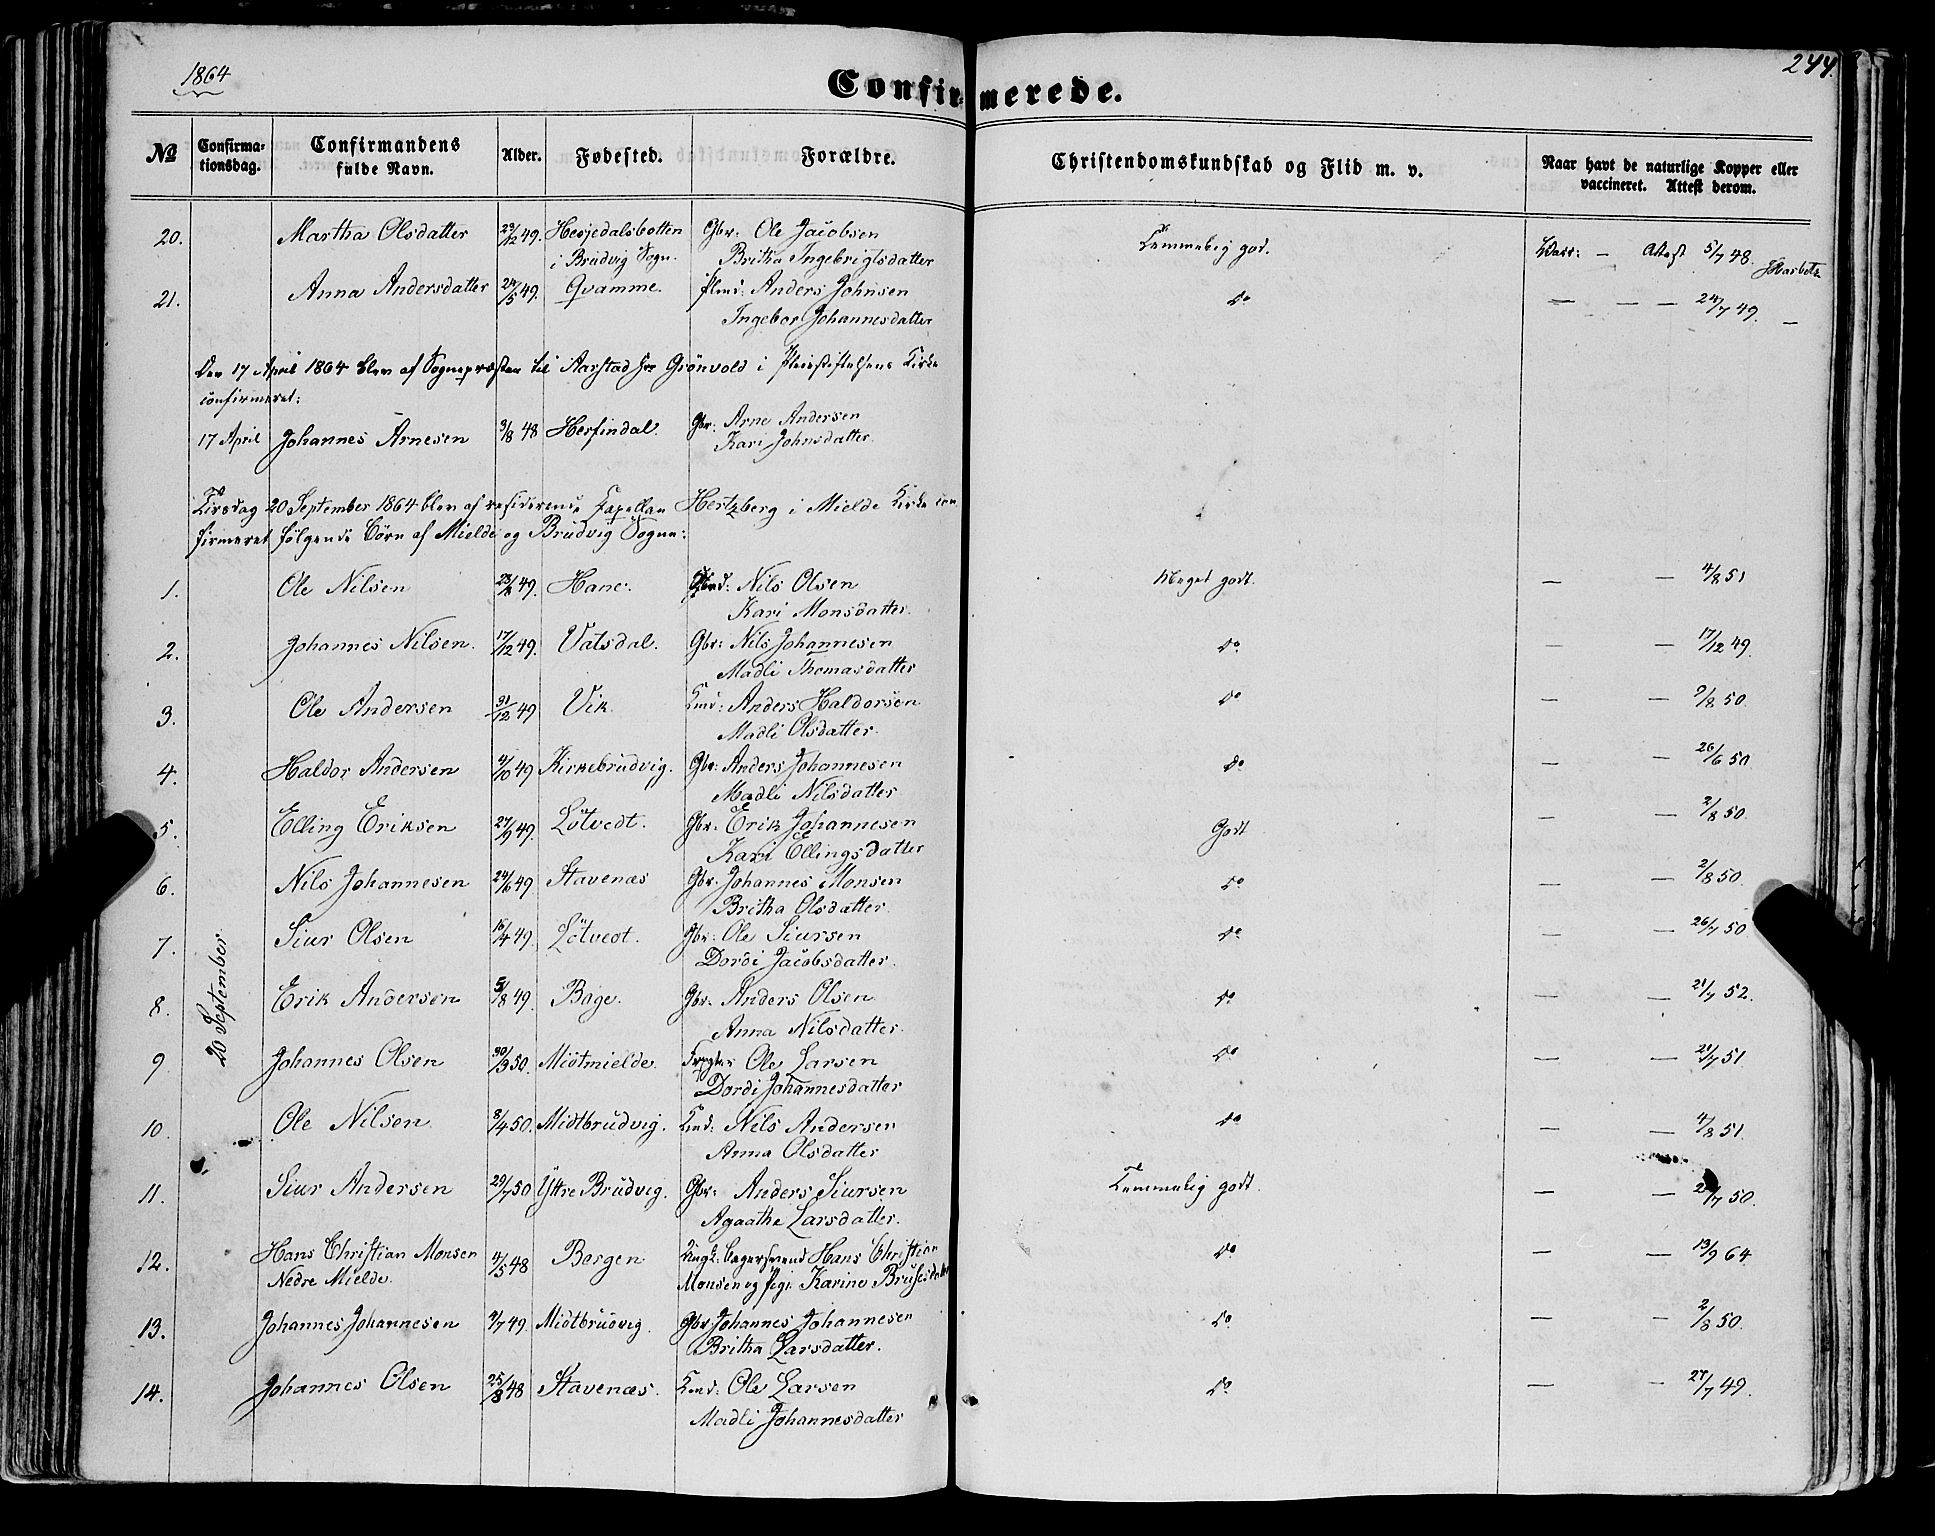 1864
Confirmerede.
244.
No Confirmationsdag. Confirmandens fulde Navn. Alder. Fødested. Forældre. Christendomskundskab og Flid m. v. Naar havt de naturlige Kopper eller vaccineret. Attest derom.
20. Martha Olsdatter 23/12 49. Hesjedalsbotten Gbr: Ole Jacobsen Temmelig god. Vacc: — Attest 5/7 48.
i Brudvig Sogn. Britha Ingebrigtsdatter
21. Anna Andersdatter 24/5 49. Qvamme. Anders Johnsen do — — — 24/7 49. —
Ingebor Johannesdatter
Den 17 April 1864 blev af Sognepræsten til Aarstad Hr Grönvold i Pleiestiftelsens Kirke
confirmeret:
17 April Johannes Arnesen 3/8 48 Herfindal. Gbr: Arne Andersen
Kari Johnsdatter.
Tirsdag 20 September 1864 blev af residerende Kapellan Hertzberg i Mielde Kirke con
firmeret følgende Börn af Mielde og Brudvig Sogne:
1. Ole Nilsen 49. Hane. Nils Olsen Meget godt. — — 4/8 51
Kari Monsdatter.
2. Johannes Nilsen. 17/12 49. Vatsdal. Gbr: Nils Johannesen do — — 17/12 49.
Madli Thomasdatter
3. Ole Andersen 31/12 49 Vik Anders Haldorsen do — — 9/8 50.
Madli Olsdatter.
4. Haldor Andersen 4/10 49 Kirkebrudvig. Gbr: Anders Johannesen do — — 26/6 50
Madli Nilsdatter
5. Elling Eriksen 27/9 49. Lötvedt. Gbr: Erik Johannesen Godt — — 2/8 50.
Kari Ellingsdatter
6. Nils Johannesen 24/6 49 Stavenæs Gbr: Johannes Monsen do — — 2/8 50.
Britha Olsdatter.
7. Siur Olsen 16/4 49. Lötvedt. Gbr: Ole Siursen do — — 26/7 50
Dordi Jacobsdatter.
20 September
8. Erik Andersen 5/8 49. Boge. Gbr: Anders Olsen do — — 21/7 52.
Anna Nilsdatter.
9. Johannes Olsen 30/3 50. Midtmielde. Ole Larsen do — — 21/7 51.
Dordi Johannesdatter
10. Ole Nilsen 8/4 50. Midtbrudvig. Nils Andersen do — — 4/8 51.
Anna Olsdatter
11. Siur Andersen 29/7 50 Yttre Brudvig. Gbr: Anders Siursen Temmelig godt. — — 50.
Agaathe Larsdatter.
12. Hans Christian Monsen 4/5 48 Bergen Hans Christian do — — 13/9 64
Nedre Mielde. Monsen og Pige Karine
13. Johannes Johannesen 4/7 49. Midtbrudvig. Gbr Johannes Johannesen do — — 2/8 50.
Britha Larsdatter.
14. Johannes Olsen 25/8 48 Stavenæs. Ole Larsen do — — 27/7 49.
Madli Johannesdatter